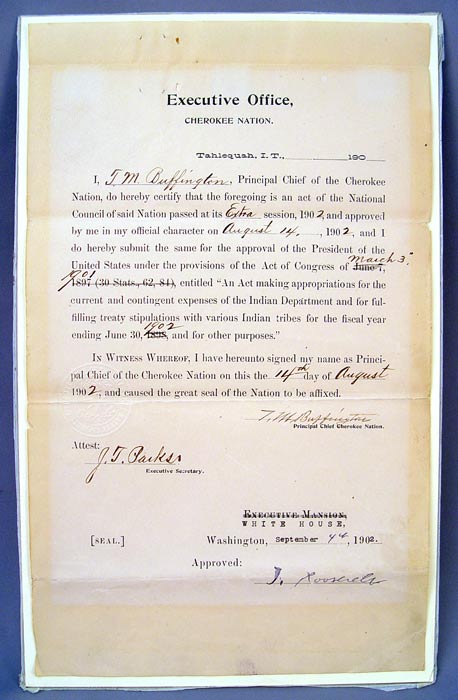 Executive Office,
CHEROKEE NATION.
Tahlequah, I. T., 190
I, T. M. Buffington, Principal Chief of the Cherokee
Nation, do hereby certify that the foregoing is an act of the National
Council of said Nation passed at its Extra session, 1902, and approved
by me in my official character on August 14, 1902, and I
do hereby submit the same for the approval of the President of the
United States under the provisions of the Act of Congress of June 7, March 3
1897 1901 (30 Stats., 62, 84), entitled “An Act making appropriations for the
current and contingent expenses of the Indian Department and for ful-
filling treaty stipulations with various Indian tribes for the fiscal year
ending June 30, 1898 1902, and for other purposes.”
IN WITNESS WHEREOF, I have hereunto signed my name as Princi-
pal Chief of the Cherokee Nation on this the 14th day of August
1902, and caused the great seal of the Nation to be affixed.
T. M. Buffington
Principal Chief Cherokee Nation.
Attest:
J. T. Parks
Executive Secretary.
EXECUTIVE MANSION,
WHITE HOUSE,
[SEAL.] Washington, September 1902.
Approved:
T. Roosevelt